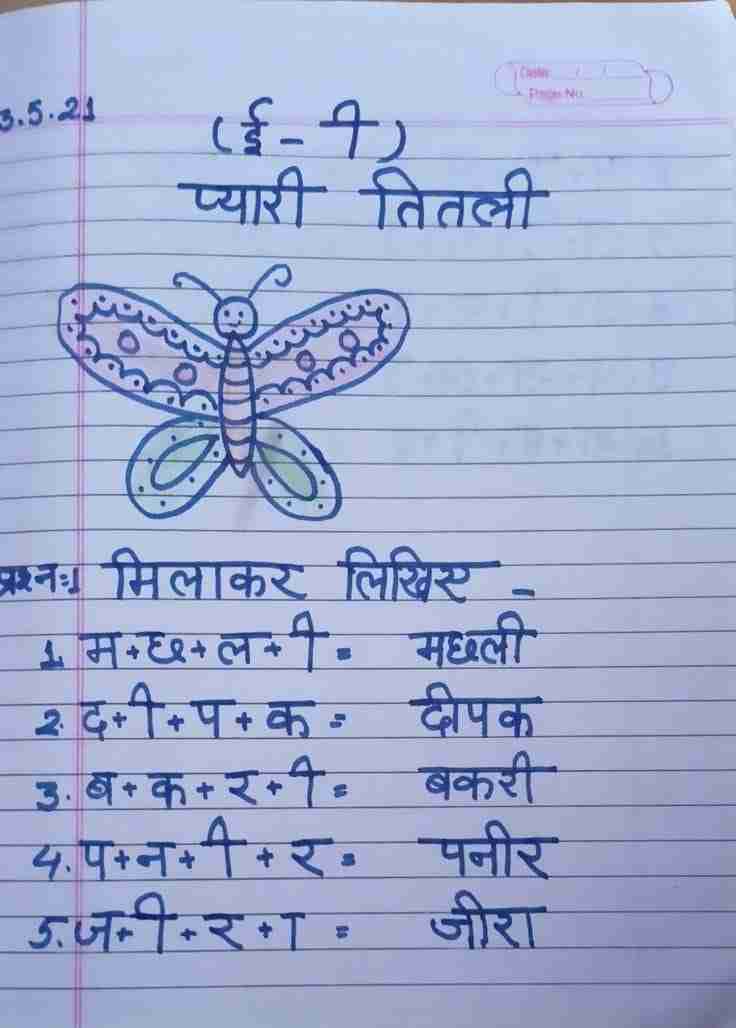 Date / /
Page No
3.5.21
(ई - ी)
प्यारी तितली
प्रश्न:1 मिलाकर लिखिए -
1. म+छ+ल+ी = मछली
2. द+ी+प+क = दीपक
3. ब+क+र+ी = बकरी
4. प+न+ी+र = पनीर
5. ज+ी+र+ा = जीरा